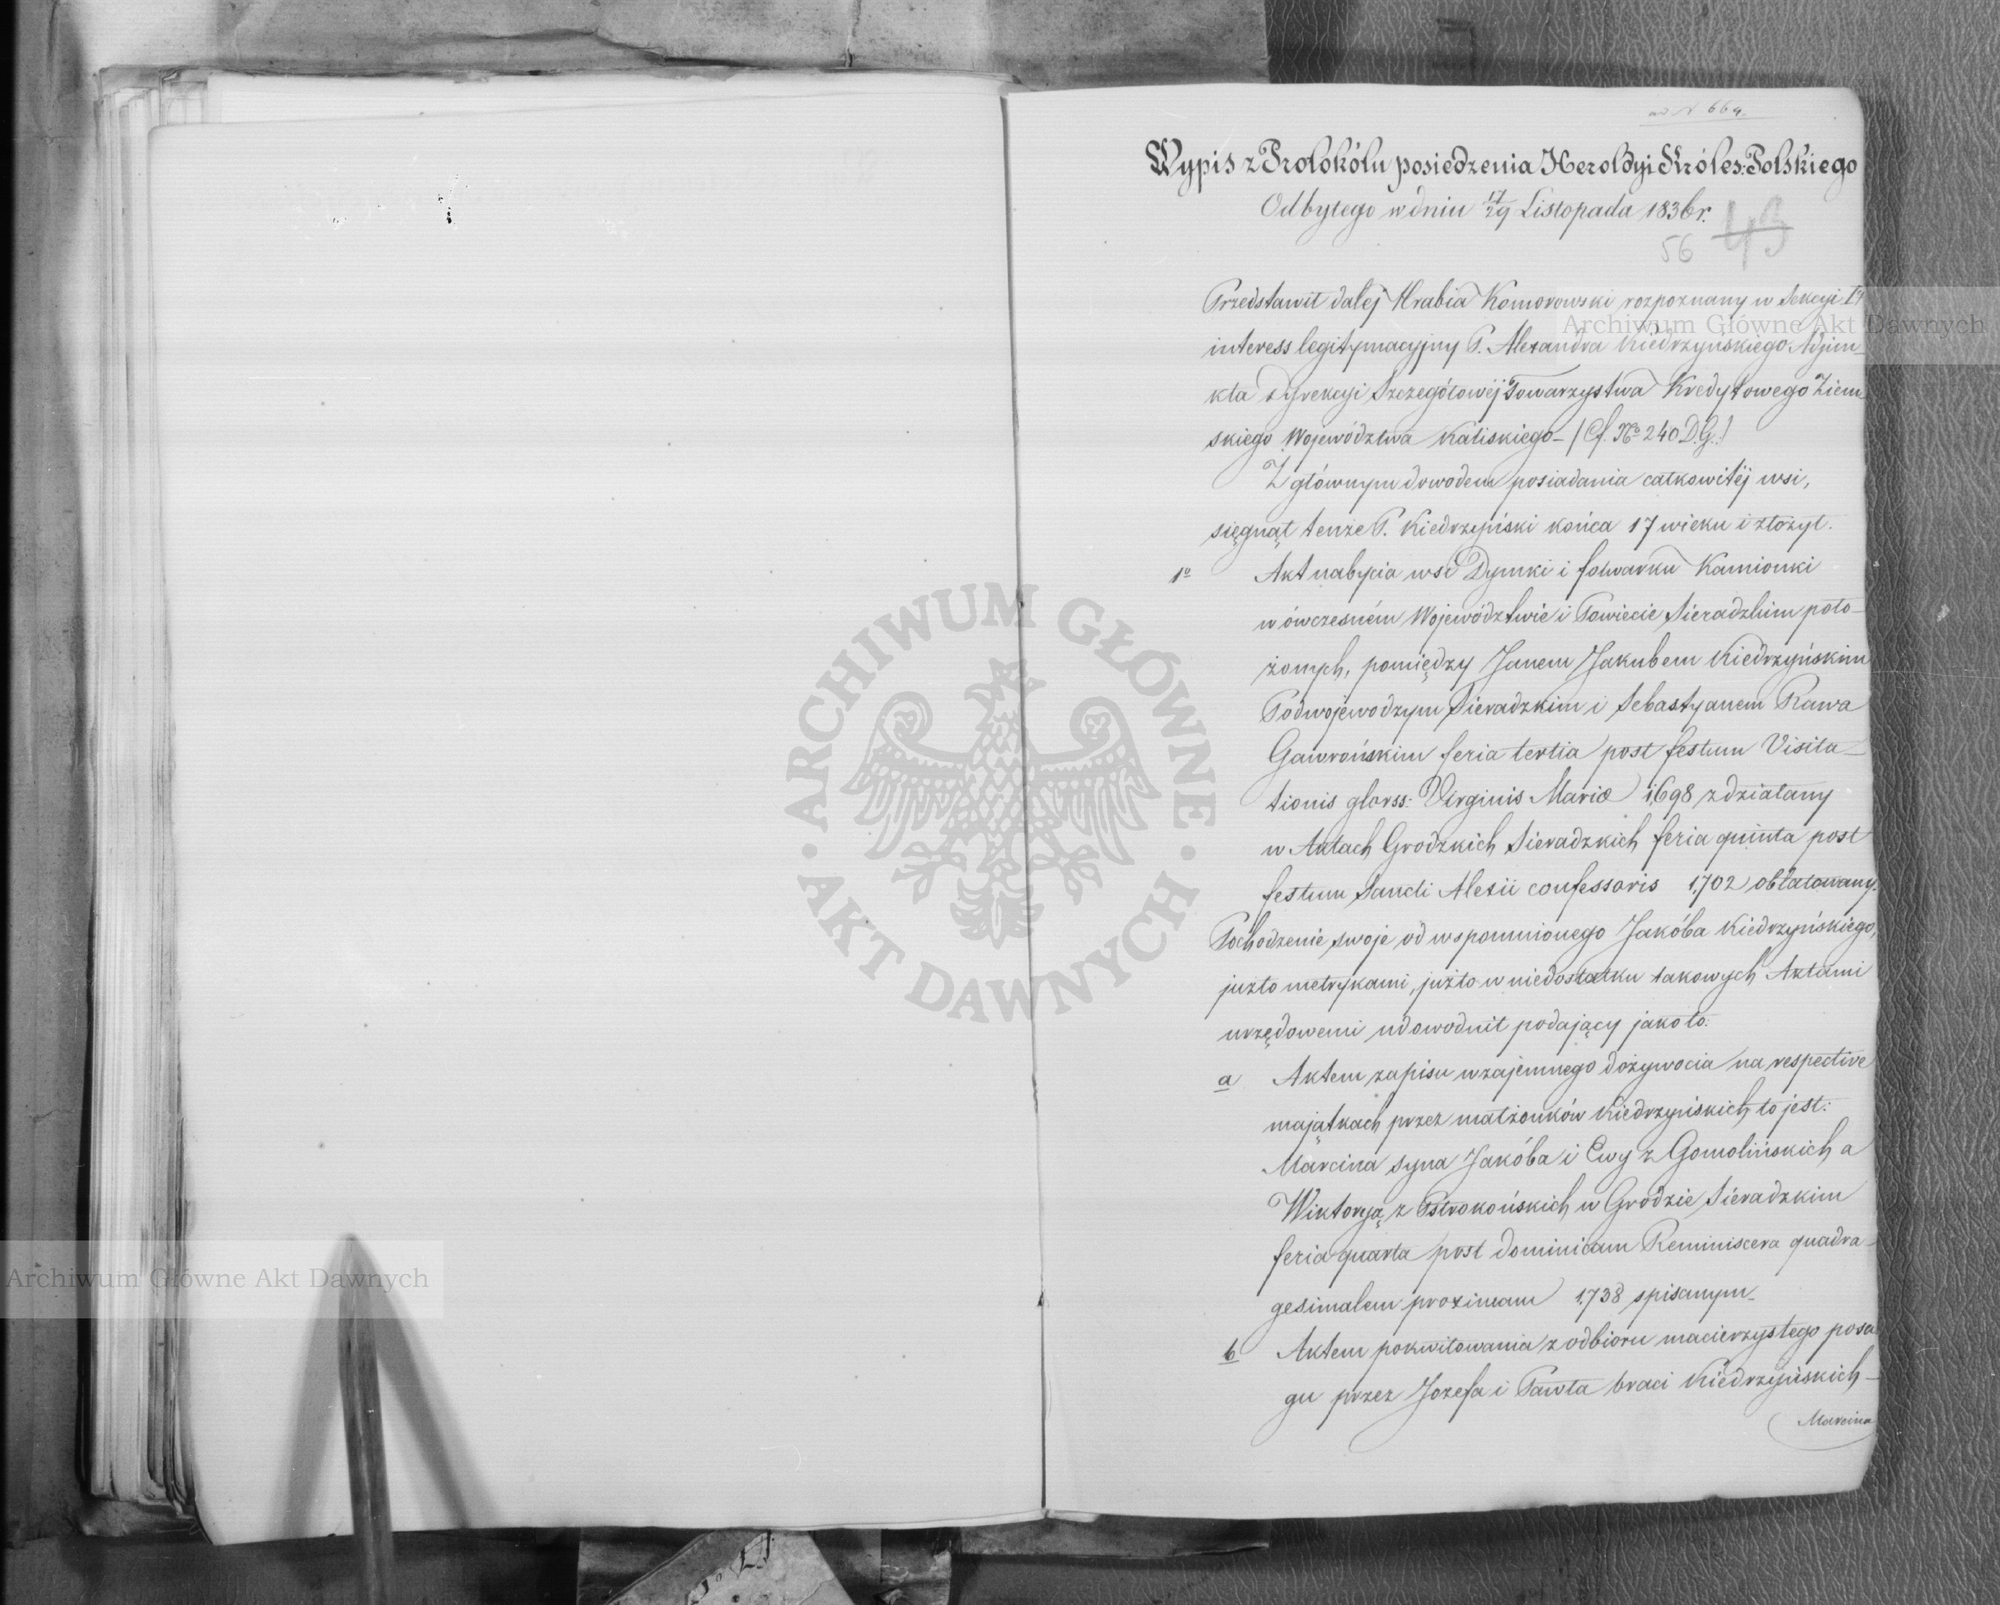 ad N 669.
Wypis z Protokółu posiedzenia Heroldyi Króles: Polskiego
Odbytego w dniu 17/29 Listopada 1836 r.
56 43
Przedstawił dalej Hrabia Komorowski rozpoznany w Sekcyi Iej
interess legitymacyjny P. Alexandra Kiedrzyńskiego Adjun-
kta Dyrekcyi Szczegółowéj Towarzystwa Kredytowego Ziem
skiego Województwa Kaliskiego – / Cf. No 240 D.G. /
Z głównym dowodem posiadania całkowitéj wsi,
sięgnął tenże P. Kiedrzyński końca 17 wieku i złożył.
1o Akt nabycia wsi Dymki i folwarku Kamionki
w ówczesném Województwie i Powiecie Sieradzkim poło-
żonych, pomiędzy Janem Jakubem Kiedrzyńskim
Podwojewodzym Sieradzkim i Sebastyanem Rawa
Gawrońskim feria tertia post festum Visita-
tionis glorss: Virginis Mariæ 1698 zdziałany
w Aktach Grodzkich Sieradzkich feria quinta post
festum Sancti Alexii confessoris 1702 oblatowany.
Pochodzenie swoje od wspomnionego Jakóba Kiedrzyńskiego,
jużto metrykami, jużto w niedostatku takowych Aktami
urzędowemi udowodnił podający jakoto:
a Aktem zapisu wzajemnego dożywocia na respective
majątkach przez małżonków Kiedrzyńskich, to jest:
Marcina syna Jakóba i Ewy z Gomolińskich a
Wiktoryą z Pstrokońskich w Grodzie Sieradzkim
feria quarta post dominicam Reminiscera quadra-
gesimalem proximam 1738 spisanym –
b Aktem pokwitowania z odbioru macierzystego posa
gu przez Jozefa i Pawła braci Kiedrzyńskich –
Marcina
Archiwum Główne Akt Dawnych
· ARCHIWUM GŁÓWNE · AKT DAWNYCH
Archiwum Główne Akt Dawnych